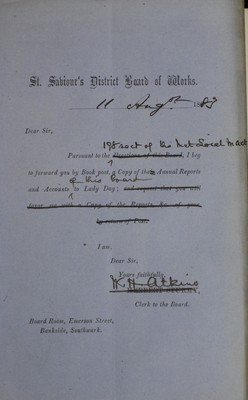 St. Saviour's District Board of Works.
11 Augst 1883
Dear Sir,
198 sect of the Met Local M act
Pursuant to the Directions of this Board, I beg
to forward you by Book post, a Copy of the Annual Reports
of this Board
and Accounts to Lady Day; and request that you will
favor me with a Copy of the Reports, &c. of your
by return of Post.
I am,
Dear Sir,
Yours faithfully,
W. H. Atkins
Clerk to the Board.
Board Room, Emerson Street,
Bankside, Southwark.